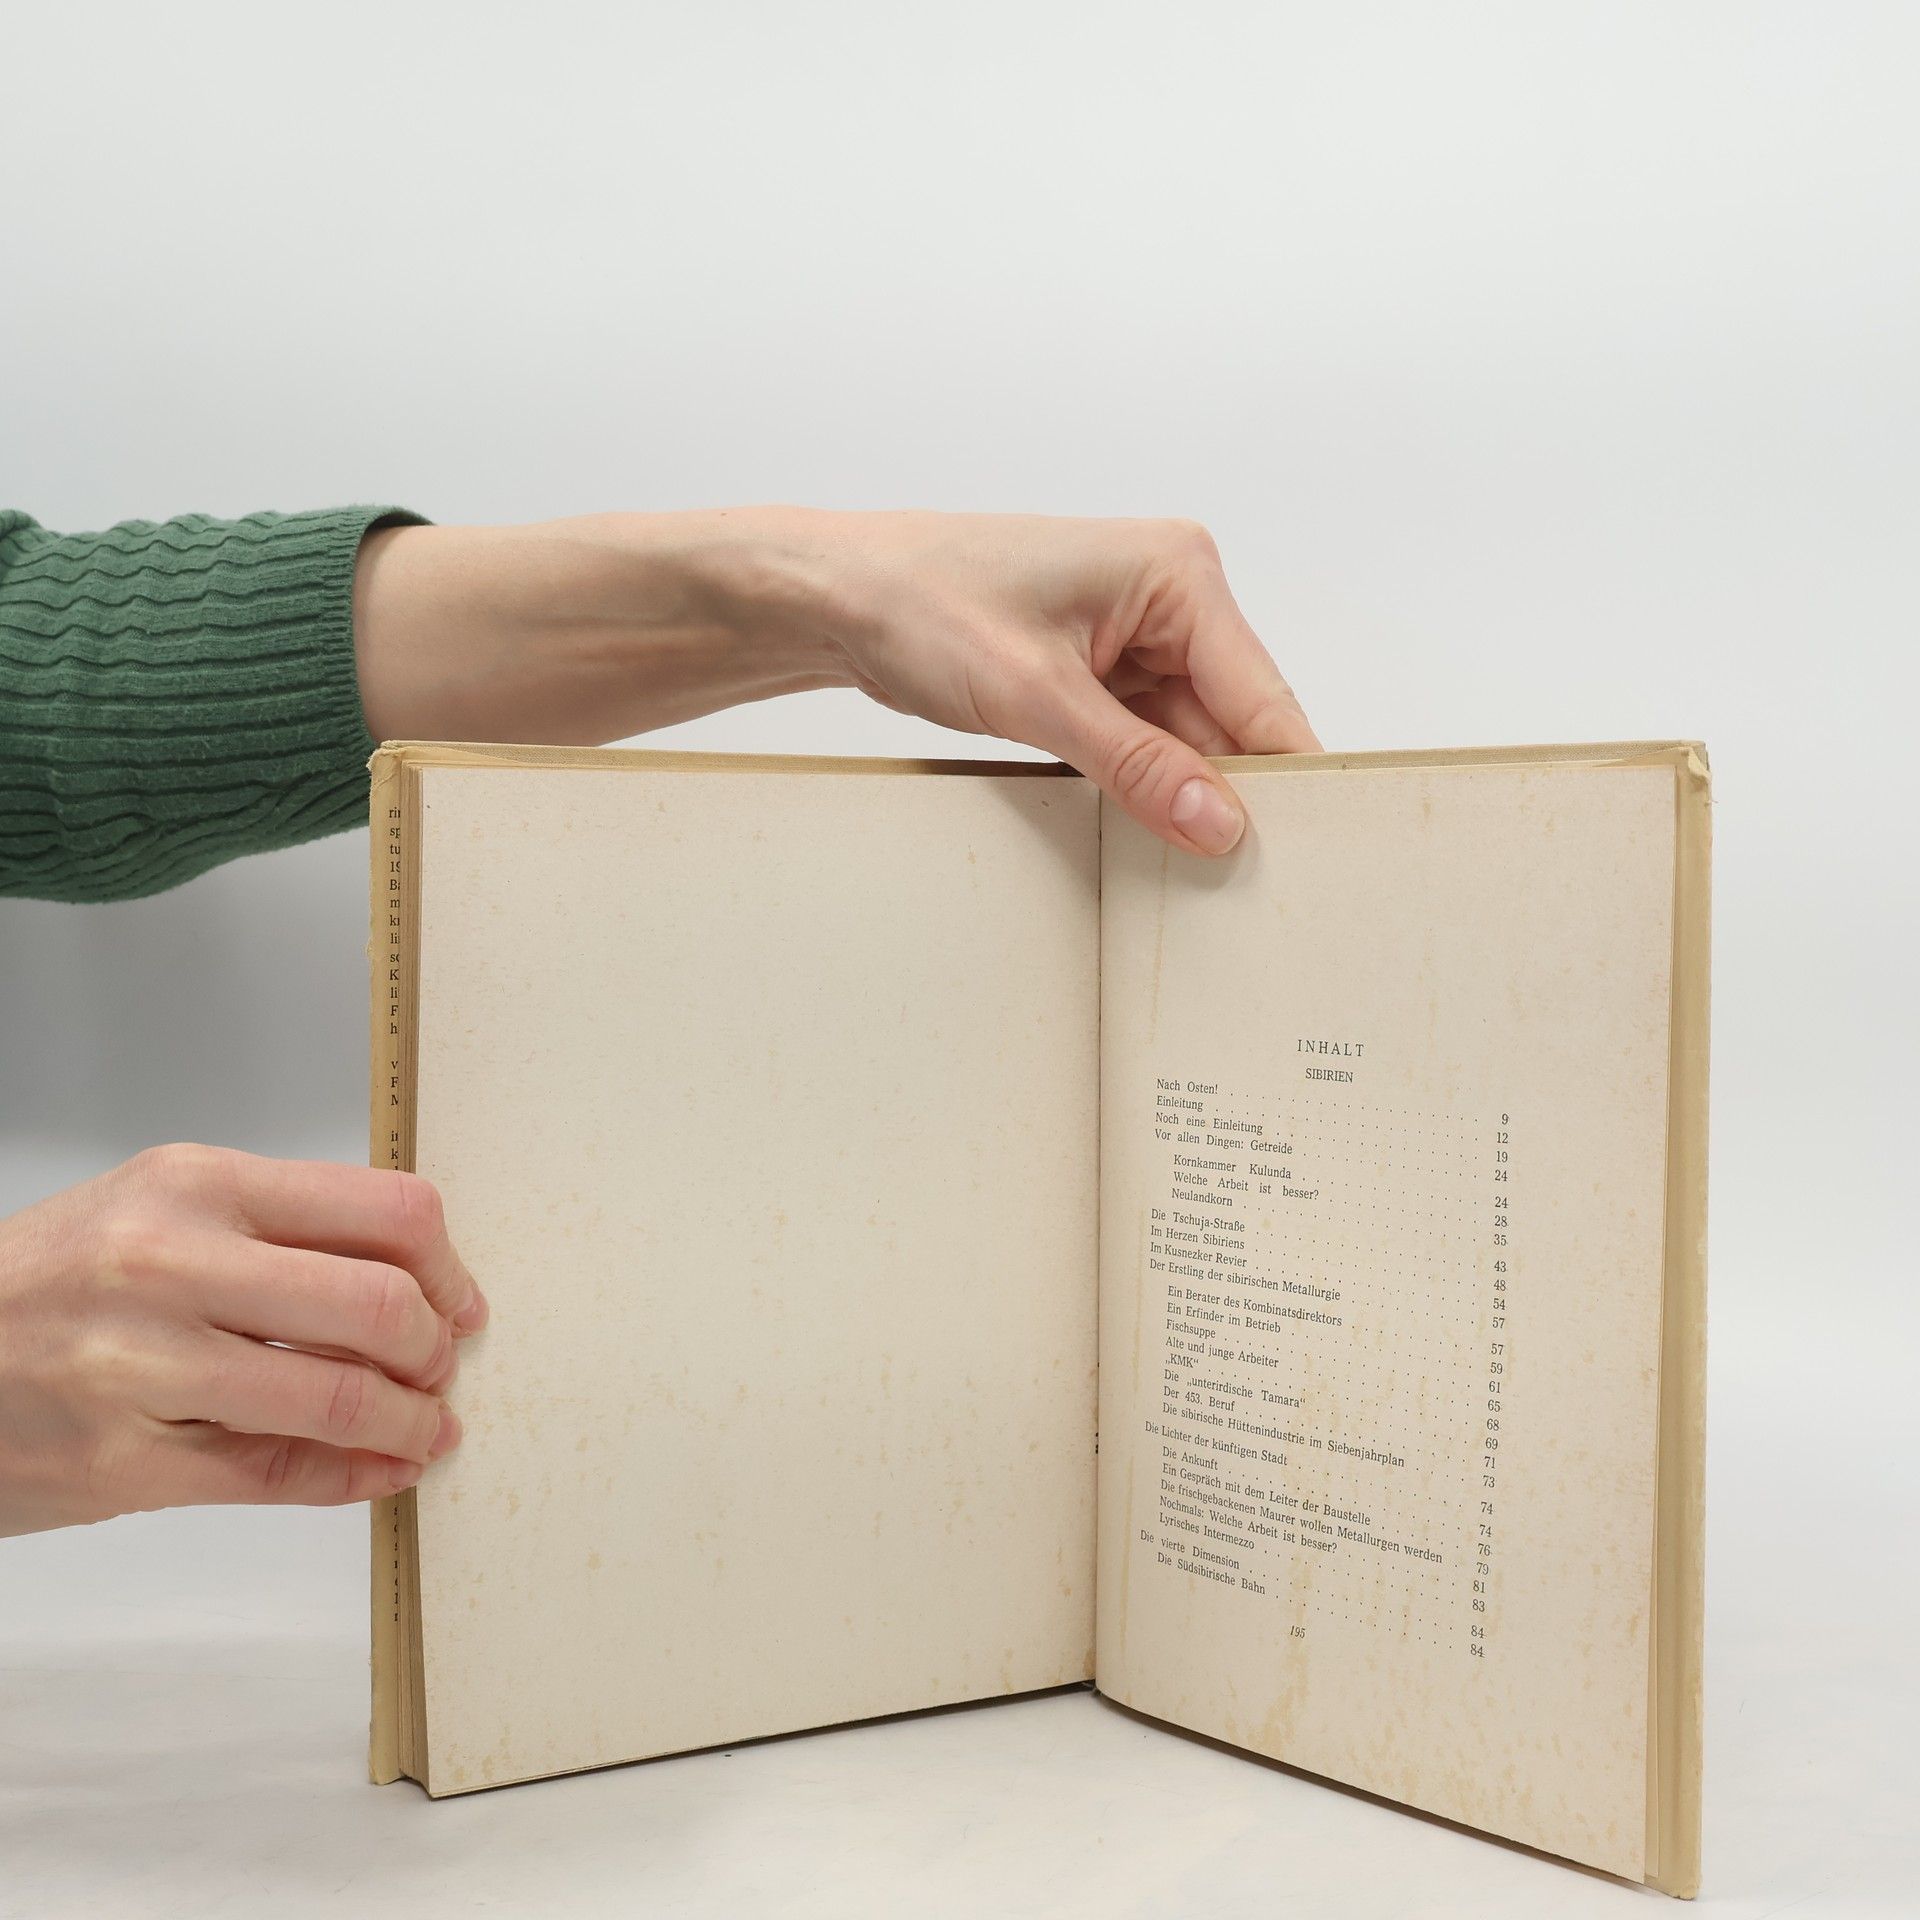 INHALT
SIBIRIEN
Nach Osten! . . . . . 9
Einleitung . . . . . 12
Noch eine Einleitung . . . . . 19
Vor allen Dingen: Getreide . . . . . 24
Kornkammer Kulunda . . . . . 24
Welche Arbeit ist besser? . . . . . 28
Neulandkorn . . . . . 35
Die Tschuja-Straße . . . . . 43
Im Herzen Sibiriens . . . . . 48
Im Kusnezker Revier . . . . . 54
Der Erstling der sibirischen Metallurgie . . . . . 57
Ein Berater des Kombinatsdirektors . . . . . 57
Ein Erfinder im Betrieb . . . . . 59
Fischsuppe . . . . . 61
Alte und junge Arbeiter . . . . . 65
„KMK“ . . . . . 68
Die „unterirdische Tamara“ . . . . . 69
Der 453. Beruf . . . . . 71
Die sibirische Hüttenindustrie im Siebenjahrplan . . . . . 73
Die Lichter der künftigen Stadt . . . . . 74
Die Ankunft . . . . . 74
Ein Gespräch mit dem Leiter der Baustelle . . . . . 76
Die frischgebackenen Maurer wollen Metallurgen werden . 79
Nochmals: Welche Arbeit ist besser? . . . . . 81
Lyrisches Intermezzo . . . . . 83
Die vierte Dimension . . . . . 84
Die Südsibirische Bahn . . . . . 84
195